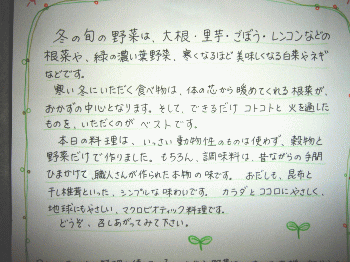 冬の旬の野菜は、大根・里芋・ごぼう・レンコンなどの
根菜や、緑の濃い葉野菜、寒くなるほど美味しくなる白菜やネギ
などです。
寒い冬にいただく食べ物は、体の芯から暖めてくれる根菜が、
おかずの中心となります。そして、できるだけコトコトと火を通した
ものを、いただくのがベストです。
本日の料理は、いっさい動物性のものは使わず、穀物と
野菜だけで作りました。もちろん、調味料は、昔ながらの手間
ひまかけて、職人さんが作られた本物の味です。おだしも、昆布と
干し椎茸といった、シンプルな味わいです。カラダとココロにやさしく、
地球にもやさしい、マクロビオティック料理です。
どうぞ、召しあがってみて下さい。